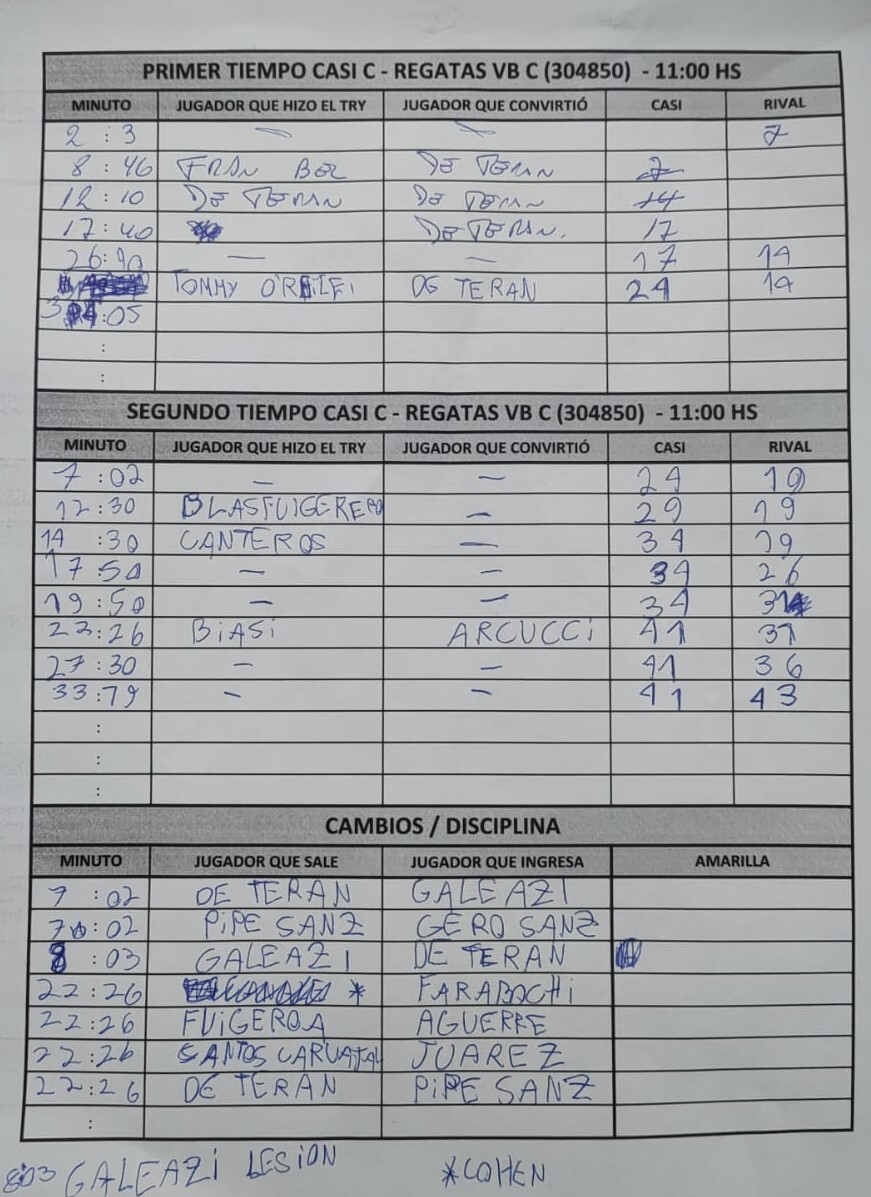 PRIMER TIEMPO CASI C - REGATAS VB C (304850) - 11:00 HS
MINUTO JUGADOR QUE HIZO EL TRY JUGADOR QUE CONVIRTIÓ CASI RIVAL
2 : 3 — — 7
8 : 46 FRAN BEL DE TERAN 7
12 : 10 DE TERAN DE TERAN 14
17 : 40 DE TERAN. 17
26 : 40 — — 17 14
TOMMY O'REILEI DE TERAN 24 14
:05
:
:
SEGUNDO TIEMPO CASI C - REGATAS VB C (304850) - 11:00 HS
MINUTO JUGADOR QUE HIZO EL TRY JUGADOR QUE CONVIRTIÓ CASI RIVAL
7 : 02 — — 24 19
12 : 30 BLASFUIGERERO — 29 19
14 : 30 CANTEROS — 34 19
17 : 50 — — 34 26
19 : 50 — — 34 31
22 : 26 BIASI ARCUCCI 41 31
27 : 30 — — 41 36
33 : 79 — — 41 43
:
:
:
CAMBIOS / DISCIPLINA
MINUTO JUGADOR QUE SALE JUGADOR QUE INGRESA AMARILLA
7 : 02 DE TERAN GALEAZI
7 : 02 PIPE SANZ GERO SANZ
8 : 03 GALEAZI DE TERAN
22 : 26 * FARABOCHI
22 : 26 FUIGEROA AGUERRE
22 : 26 SANTOS CARVAJAL JUAREZ
22 : 26 DE TERAN PIPE SANZ
:
803 GALEAZI LESION *COHEN